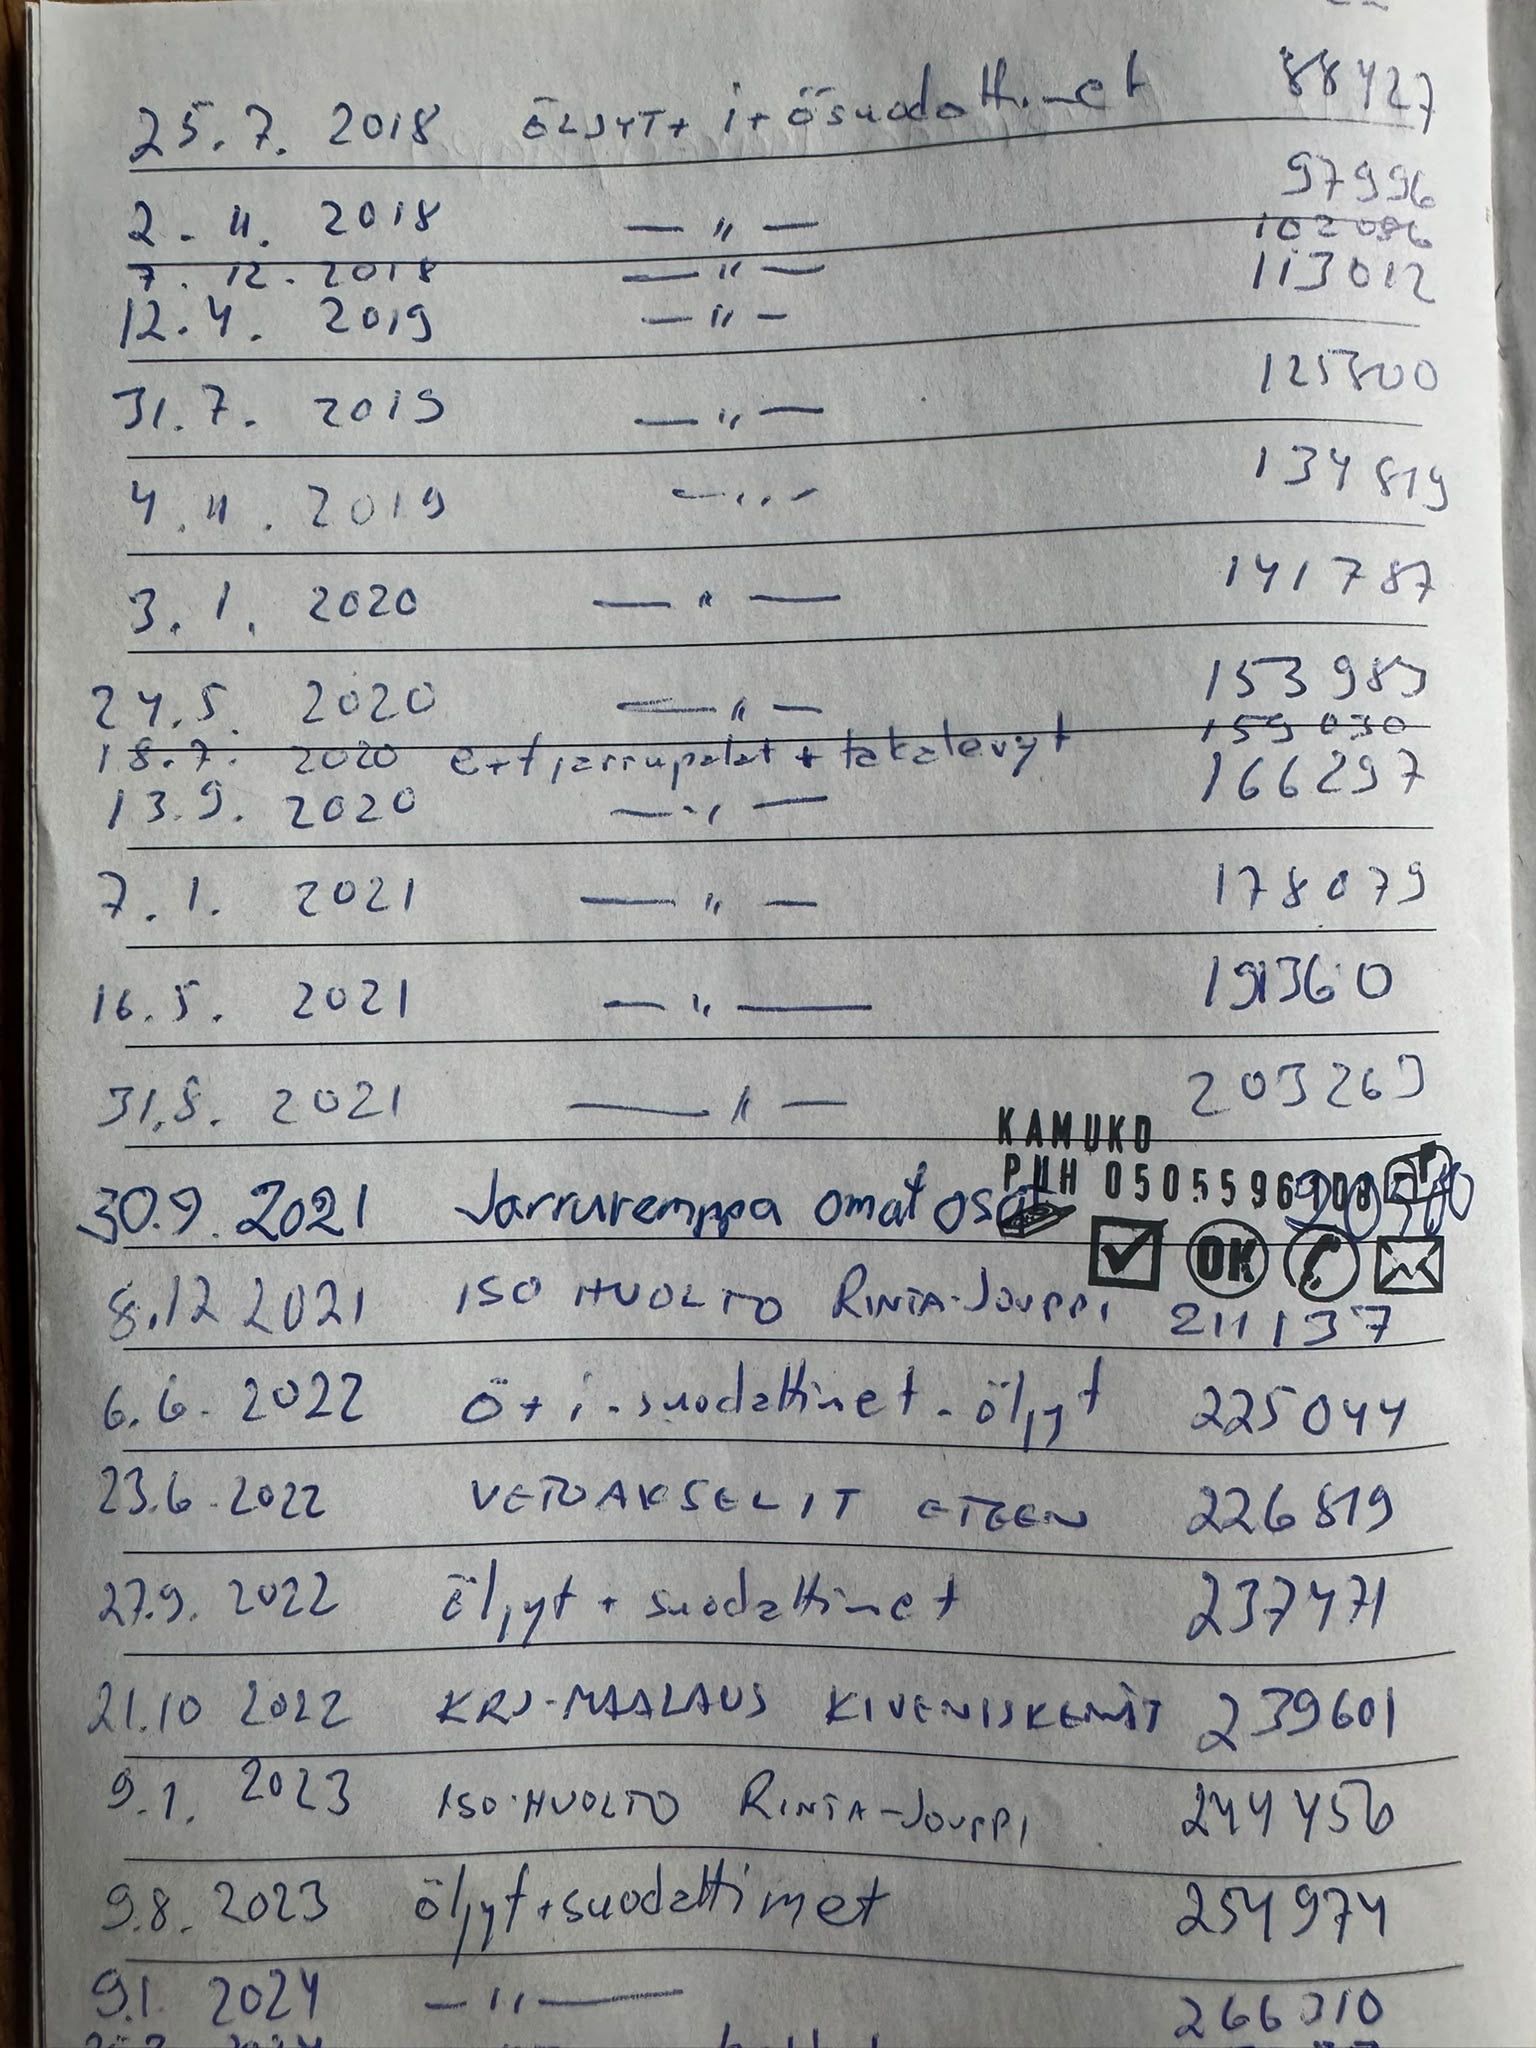 25.7. 2018 ÖLJYT+ i+ösuodattimet 88427
2.11. 2018 —"— 97996
7.12.2018 —"— 102086
12.4. 2019 —"— 113012
31.7. 2019 —"— 125800
4.11. 2019 —"— 134819
3.1. 2020 —"— 141787
24.5. 2020 —"— 153983
18.7. 2020 e+t jarrupalat + takalevyt 159030
13.9. 2020 —"— 166297
7.1. 2021 —"— 178079
16.5. 2021 —"— 191360
31.8. 2021 —"— 203263
KAMUKO
PUH 0505596908
30.9. 2021 Jarruremppa omat osat
OK
8.12 2021 ISO HUOLTO RINTA-JOUPPI 211137
6.6. 2022 Ö+ i-suodattimet - öljyt 225044
23.6.2022 VETOAKSELIT ETEEN 226819
27.9. 2022 öljyt + suodattimet 237471
21.10 2022 KRJ-MAALAUS KIVENISKEMÄT 239601
9.1. 2023 ISO-HUOLTO RINTA-JOUPPI 244456
9.8. 2023 öljyt+suodattimet 254974
9.1. 2024 —"— 266310